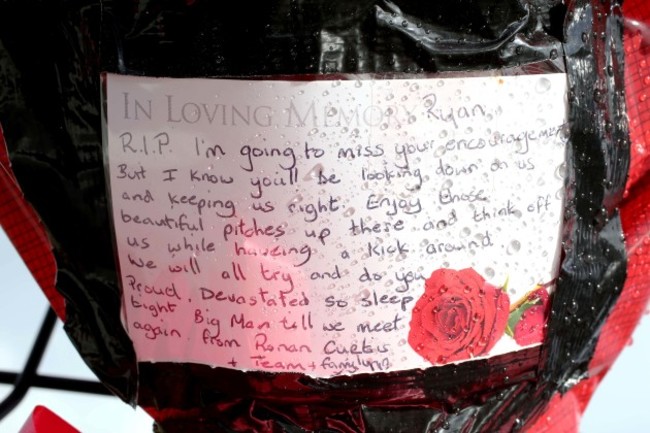 IN LOVING MEMORY Ryan,
R.I.P. I'm going to miss your encouragement
But I know you'll be looking down on us
and keeping us right. Enjoy those
beautiful pitches up there and think off
us while haveing a kick around
We will all try and do you
Proud. Devastated so sleep
tight Big Man till we meet
again from Ronan Curtis
+ Team + family